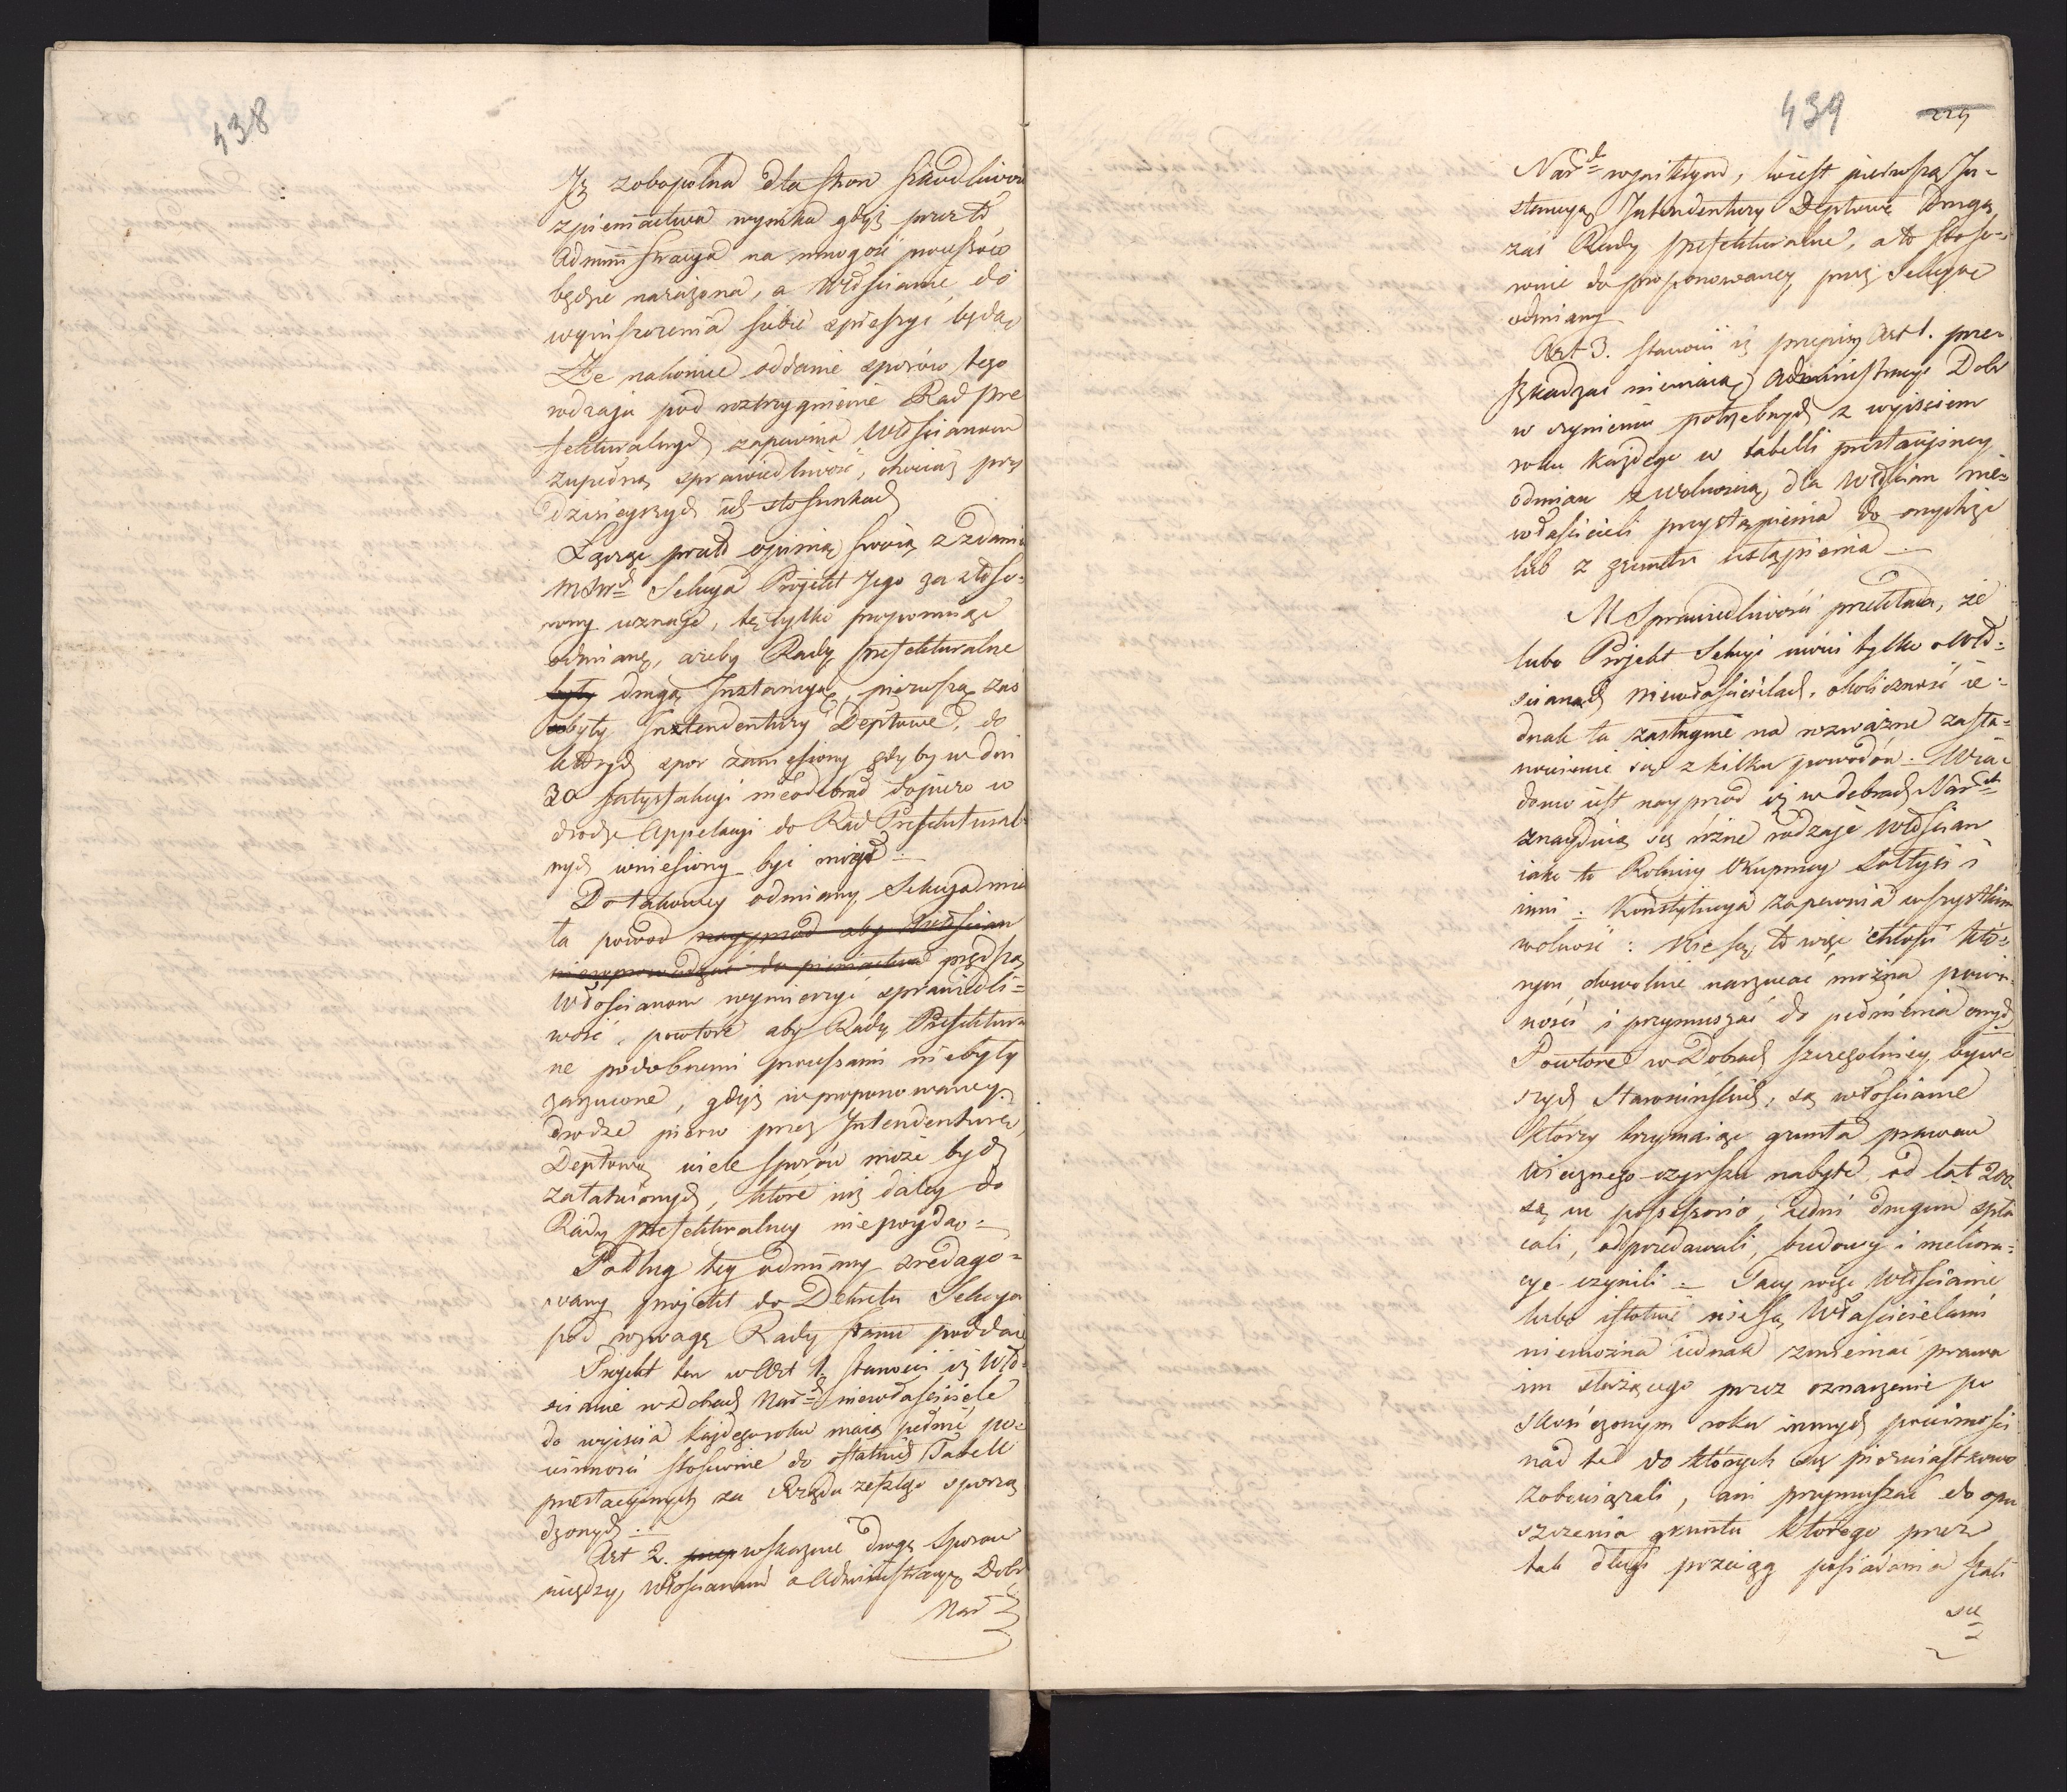 438
Iż zobopolna dla stron szkodliwość
z pieniactwa wynika gdyż przez to
Administracya na mnogość processów
będzie narażona, a Włościanie do
wyniszczenia siebie spieszyć będą
Że nakoniec oddanie sporów tego
rodzaju pod roztrzygnienie Rad Pre
fekturalnych zapewnia Włościanom
zupełną sprawiedliwość, chociaż przy
dzisieyszych ich stosunkach
Łącząc przeto opinią swoią z zdaniem
MSWch Sekcya Projekt Jego za stoso-
wny uznaje, tę tylko proponuiąc
odmianę, ażeby Rady prefekturalne
były drugą Instancyą, pierwszą zaś
były Intendentury Deptowe, do
których spor zaniesiony gdyby w dni
30 satysfakcyi nieodebrał dopiero w
drodze Appellacyi do Rad Prefektural-
nych wniesiony być mógł
Do takowey odmiany Sekcya mia
ła powod nayprzod aby Włościan
nieprowadzać do pieniactwa prędszą
Włościanom wymierzyć sprawiedli=
wość, powtore aby Rady Prefektural
ne podobnemi processami niebyły
zarzucone, gdyż w proponowaney
drodze pierw przez Intendenturę
Deptową wiele sporów może bydź
załatwionych, które iuż daley do
Rady prefekturalney nieprzyydą =
Podług tey odmiany zredago=
wany projekt do Dekretu Sekcya
pod rozwagę Rady Stanu poddaie
Projekt ten w Art 1. stanowi iż Wło-
ścianie w Dobrach Narch niewłaściciele
do wyjścia każdego roku maią pełnić po-
winności stosownie do ostatnich Tabell
prestacyjnych za Rządu zeszłego sporzą
dzonych
Art 2. wskazuie drogę Sporow
między Włościanami a Administracyą Dobr
Nar
439
229
Narch wynikłych, iest pierwszą In-
stancyą Intendentury Deptowe drugą
zaś Rady prefekturalne, a to stoso-
wnie do proponowaney przez Sekcyą
odmiany
Art 3. stanowi iż przepisy Art 1. prze-
szkadzać niemaią Administracyi Dobr
w czynieniu potrzebnych z wyjściem
roku każdego w tabelli prestacyjney
odmian z wolnością dla Włościan nie-
właścicieli przystąpienia do onychże
lub z gruntu ustąpienia
M Sprawiedliwości przekłada, że
lubo Projekt Sekcyi mówi tylko o Wło-
ścianach Niewłaścicielach, okoliczność ie-
dnak ta zasługuie na rozważne zasta-
nowienie się z kilku powodów. Wia-
domo iest nayprzod iż w dobrach Narch
znayduią się różne rodzaje Włościan
iako to Rolnicy Okupnicy Sołtysi i
inni. Konstytucya zapewnia wszystkim
wolność: Nie są to więc chłopi któ=
rym dowolnie narzucać można powin-
ności i przymuszać do pełnienia onych
Powtore w Dobrach szczegolniey byw-
szych Staroscińskich, są włościanie
którzy trzymaiąc grunta prawem
wiecznego czynszu nabyte, od lat 200
są w possessorio, iedni drugim spła
cali, odprzedawali, budowy i meliora-
cye czynili = Tacy więc Włościanie
lubo istotnie nie są Właścicielami
niemożna iednak zmieniać prawa
im służącego przez oznaczenie po
skończonym roku innych powinności
nad te do których się pierwiastkowo
zobowiązali, ani przymuszać do opu
szczenia gruntu którego przez
tak długi przeciąg posiadania stali
się